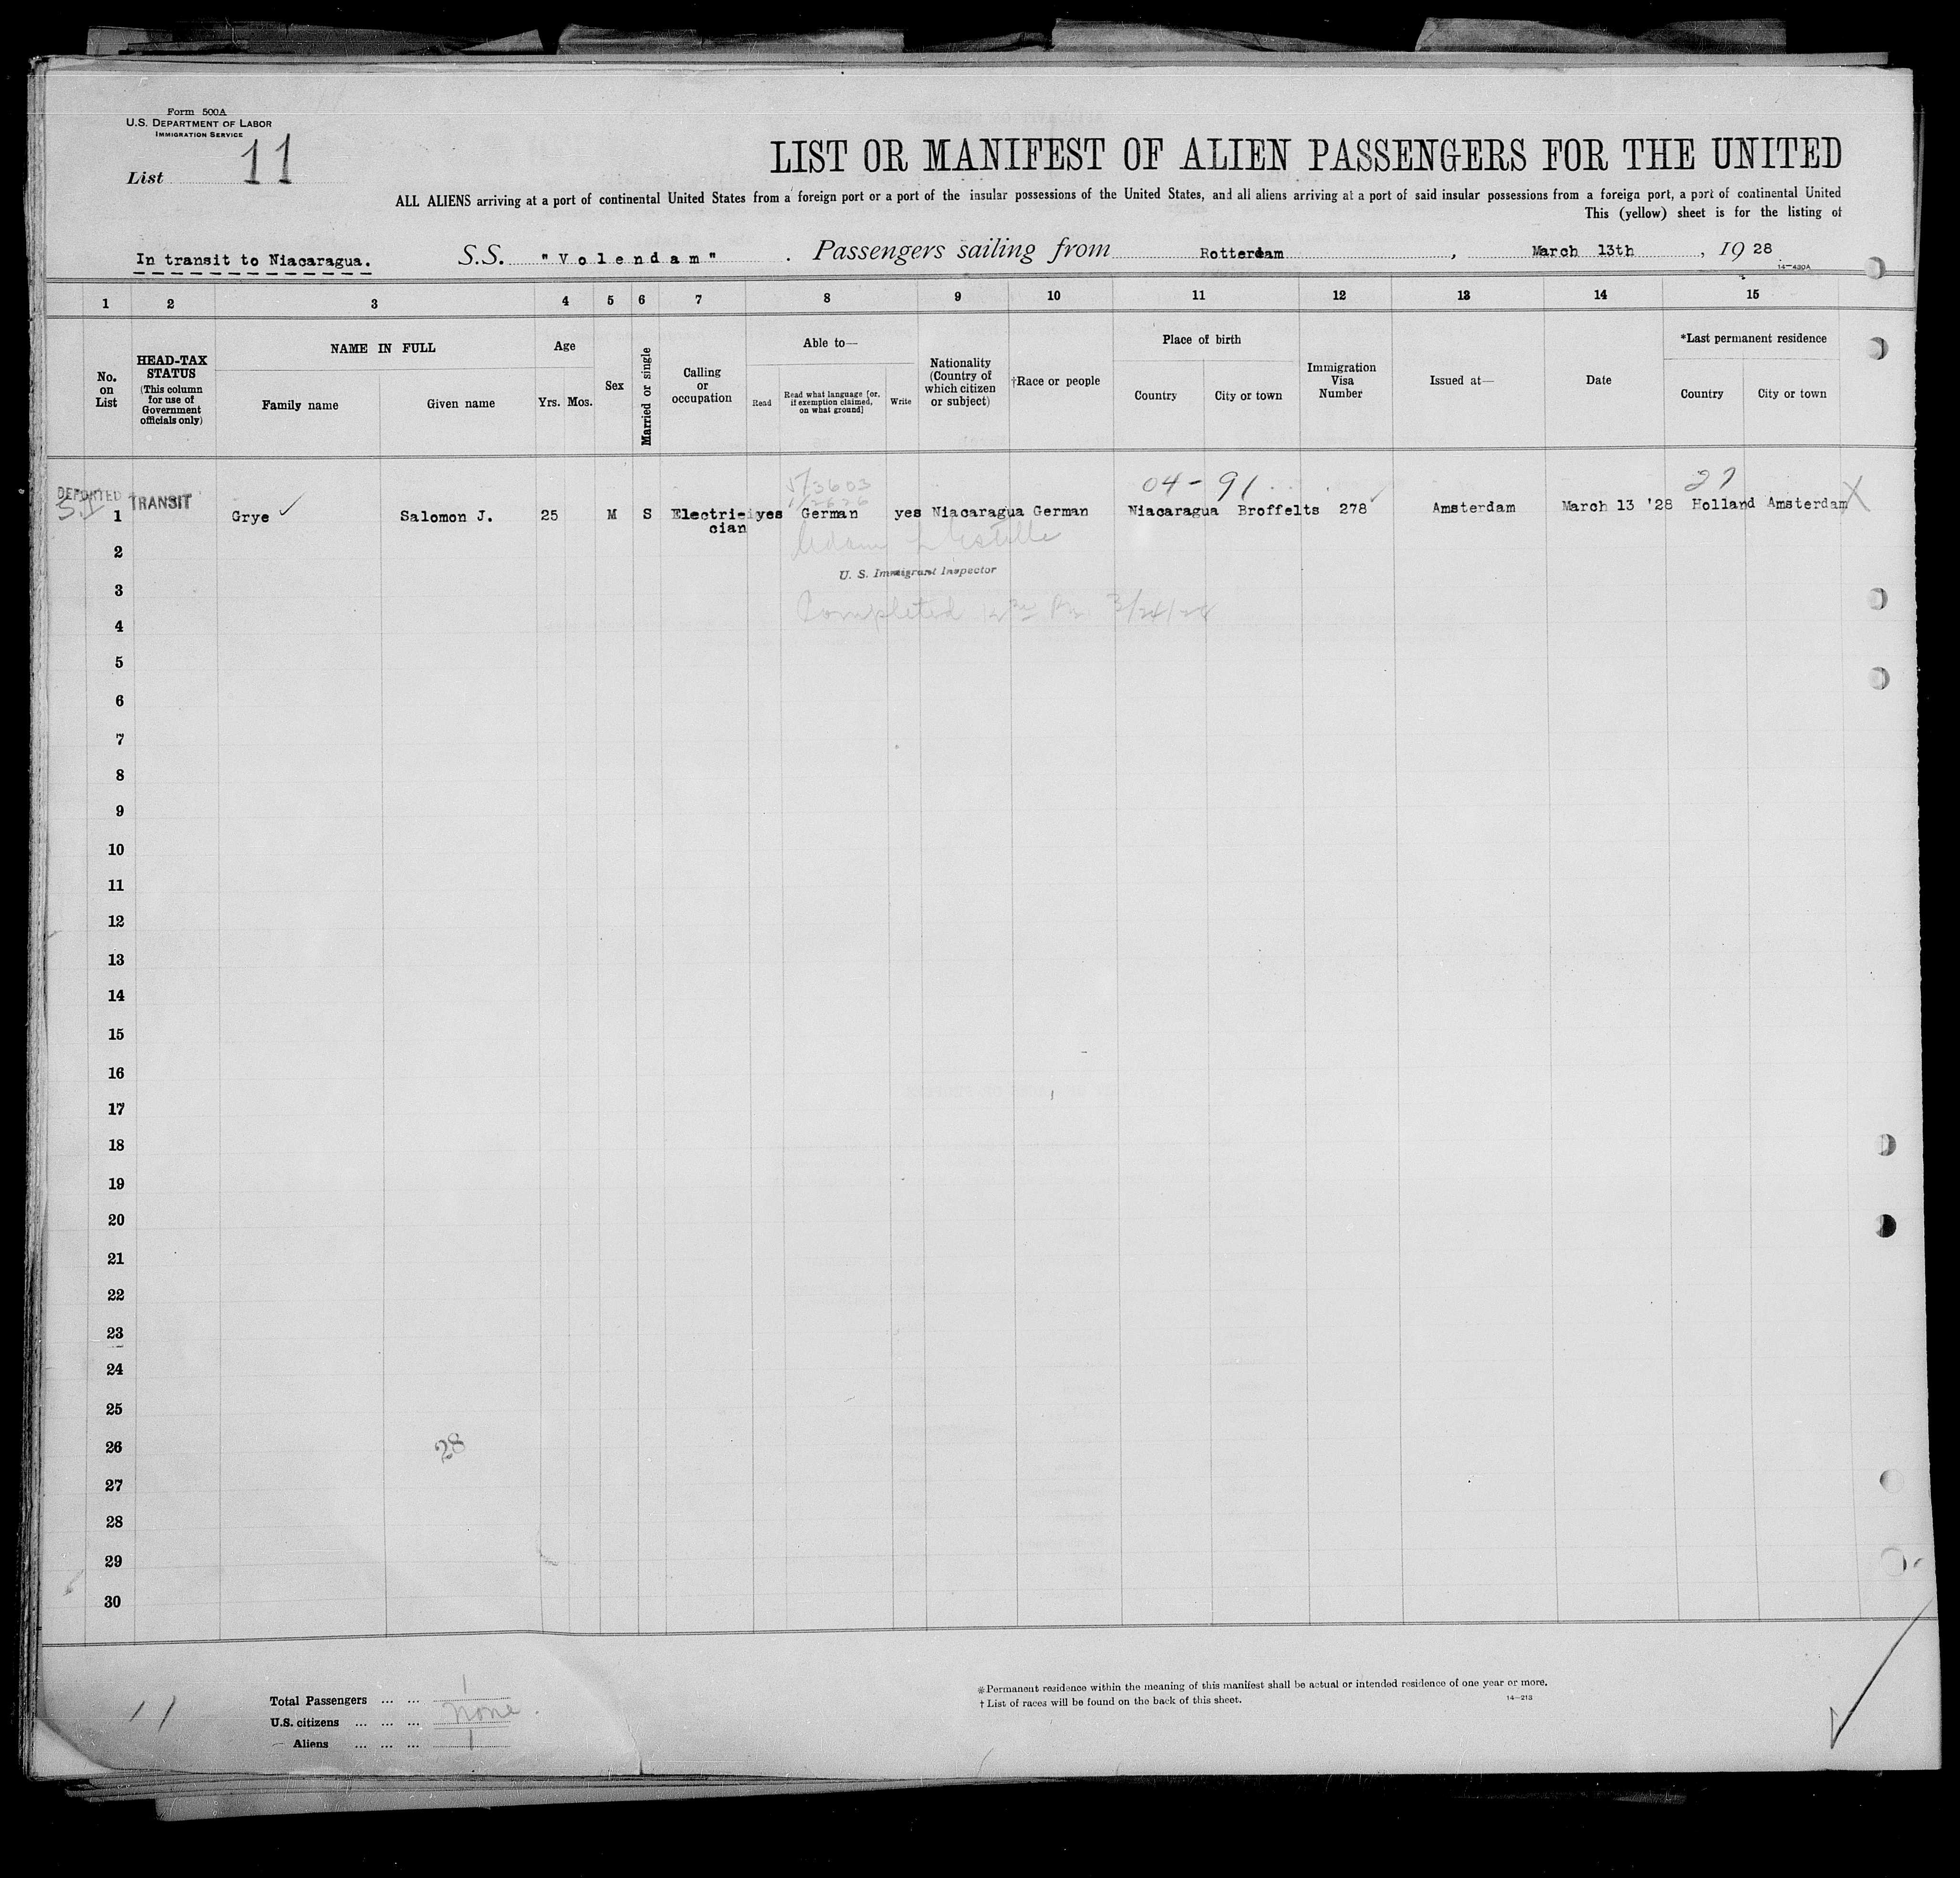 Form 500A
U.S. DEPARTMENT OF LABOR
IMMIGRATION SERVICE
List 11
LIST OR MANIFEST OF ALIEN PASSENGERS FOR THE UNITED
ALL ALIENS arriving at a port of continental United States from a foreign port or a port of the insular possessions of the United States, and all aliens arriving at a port of said insular possessions from a foreign port, a port of continental United
This (yellow) sheet is for the listing of
In transit to Niacaragua. S.S. "Volendam". Passengers sailing from Rotterdam, March 13th, 1928
14—430A
1 2 3 4 5 6 7 8 9 10 11 12 13 14 15
No. on List
HEAD-TAX STATUS (This column for use of Government officials only)
NAME IN FULL
Family name
Given name
Age
Yrs. Mos.
Sex
Married or single
Calling or occupation
Able to—
Read
Read what language [or, if exemption claimed, on what ground]
Write
Nationality (Country of which citizen or subject)
†Race or people
Place of birth
Country
City or town
Immigration Visa Number
Issued at—
Date
*Last permanent residence
Country
City or town
5/3603
04-91
27
DEPORTED
S.I
1 TRANSIT Grye ✓ Salomon J. 25 M S Electri- yes German yes Niacaragua German Niacaragua Broffelts 278 Amsterdam March 13 '28 Holland Amsterdam X
cian
2
U. S. Immigrant Inspector
3
Completed 3/24/28
4
5
6
7
8
9
10
11
12
13
14
15
16
17
18
19
20
21
22
23
24
25
26
28
27
28
29
30
11
Total Passengers ... ... 1
U.S. citizens ... ... ... none.
Aliens ... ... ... 1
*Permanent residence within the meaning of this manifest shall be actual or intended residence of one year or more.
† List of races will be found on the back of this sheet.
14—213